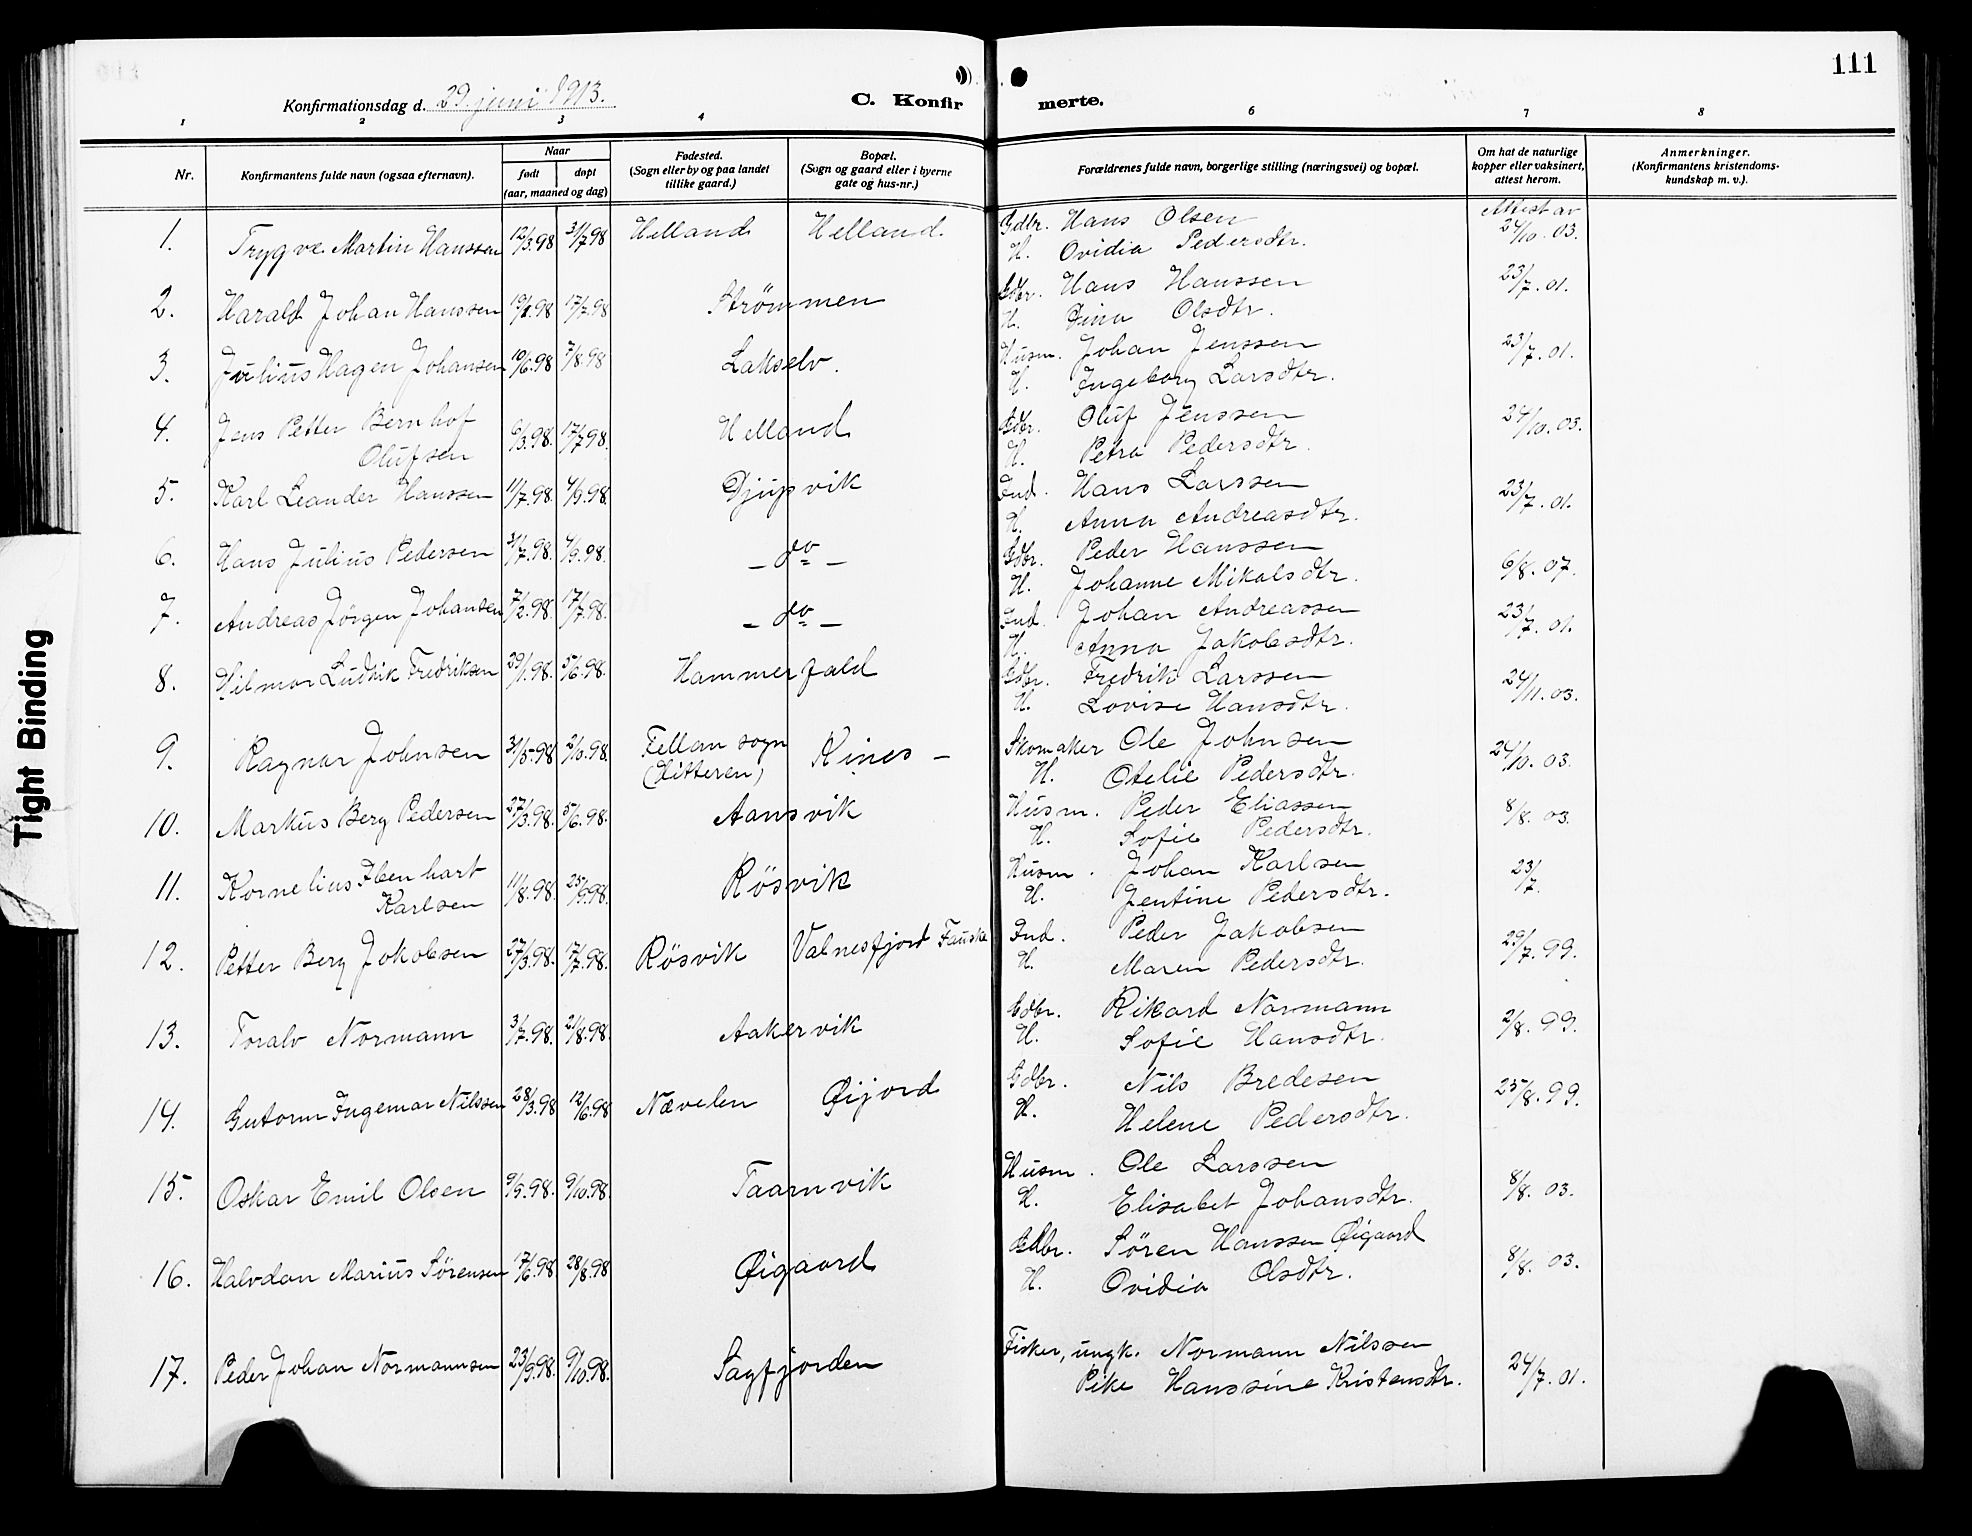 111
Konfirmationsdag d. 29. juni 1913.
C. Konfirmerte.
1 2 3 4 6 7 8
Nr. Konfirmantens fulde navn (ogsaa efternavn). Naar født døpt (aar, maaned og dag) Fødested. (Sogn eller by og paa landet tillike gaard.) Bopæl. (Sogn og gaard eller i byerne gate og hus-nr.) Forældrenes fulde navn, borgerlige stilling (næringsvei) og bopæl. Om hat de naturlige kopper eller vaksinert, attest herom. Anmerkninger. (Konfirmantens kristendomskundskap m. v.).
1. Trygve Martin Hanssen 12/3.98 31/7.98 Helland Helland. Gdbr. Hans Olsen Attest av 24/10.03.
H. Ovidia Pedersdtr.
2. Harald Johan Hanssen 17/7.98 Strömmen Gdbr. Hans Hanssen 23/7.01.
H. Dina Olsdtr.
3. Julius Hagen Johansen 10/6.98 7/8.98 Lakselv. Husm. Johan Jenssen 23/7.01.
H. Ingeborg Larsdtr.
4. Jens Petter Bernhof 6/3.98. 17/7.98. Helland Gdbr. Oluf Jenssen 24/10.03.
Olufsen H. Petra Pedersdtr.
5. Karl Leander Hanssen 11/7.98. 4/9.98. Djupvik Ind. Hans Larssen 23/7.01.
H. Anna Andreasdtr.
6. Hans Julius Pedersen 31/7.98. 4/9.98. - do - Gdbr. Peder Hanssen 6/8.07.
H. Johanne Mikalsdtr.
7. Andreas Jörgen Johansen 7/2.98. 17/7.98. - do - Ind. Johan Andreassen 23/7.01.
H. Anna Jakobsdtr.
8. Hilmar Ludvik Fredriksen 29/1.98. 5/6.98. Hammerfald Gdbr. Fredrik Larssen 24/11.03.
H. Lovise Hansdtr.
9. Ragnar Johnsen 31/5.98 2/10.98. Fellan sogn Rines - Skomaker Ole Johnsen 24/10.03.
(Hitteren) H. Otelie Pedersdtr.
10. Markus Berg Pedersen 27/3.98. 5/6.98. Aansvik Husm. Peder Eliassen 8/8.03.
H. Sofie Pedersdtr.
11. Kornelius Ibenhart 11/8.98. 25/9.98. Rösvik Husm. Johan Karlsen 23/7.
Karlsen H. Jentine Pedersdtr.
12. Petter Berg Jakobsen 27/3.98. 17/7.98. Rösvik Valnesfjord Fauske Ind. Peder Jakobsen 29/7.99.
H. Maren Pedersdtr.
13. Toralv Normann 3/7.98. 21/8.98. Aakervik Gdbr. Rikard Normann 2/8.99.
H. Sofie Hansdtr.
14. Gutorm Ingemar Nilssen 28/3.98 12/6.98 Nævelen Øijord Gdbr. Nils Bredesen 25/8.99.
H. Helene Pedersdtr.
15. Oskar Emil Olsen 9/9.98. 9/10.98. Taarnvik Husm. Ole Larssen 8/8.03.
H. Elisabet Johansdtr.
16. Halvdan Marius Sörensen 17/6.98 28/8.98 Øigaard Gdbr. Sören Hanssen Øigaard 8/8.03.
H. Ovidia Olsdtr.
17. Peder Johan Normannsen 23/9.98. 9/10.98. Sagfjorden Fisker, ungk. Normann Nilssen 24/7.01.
Pike Hanssine Kristensdtr.
Tight Binding